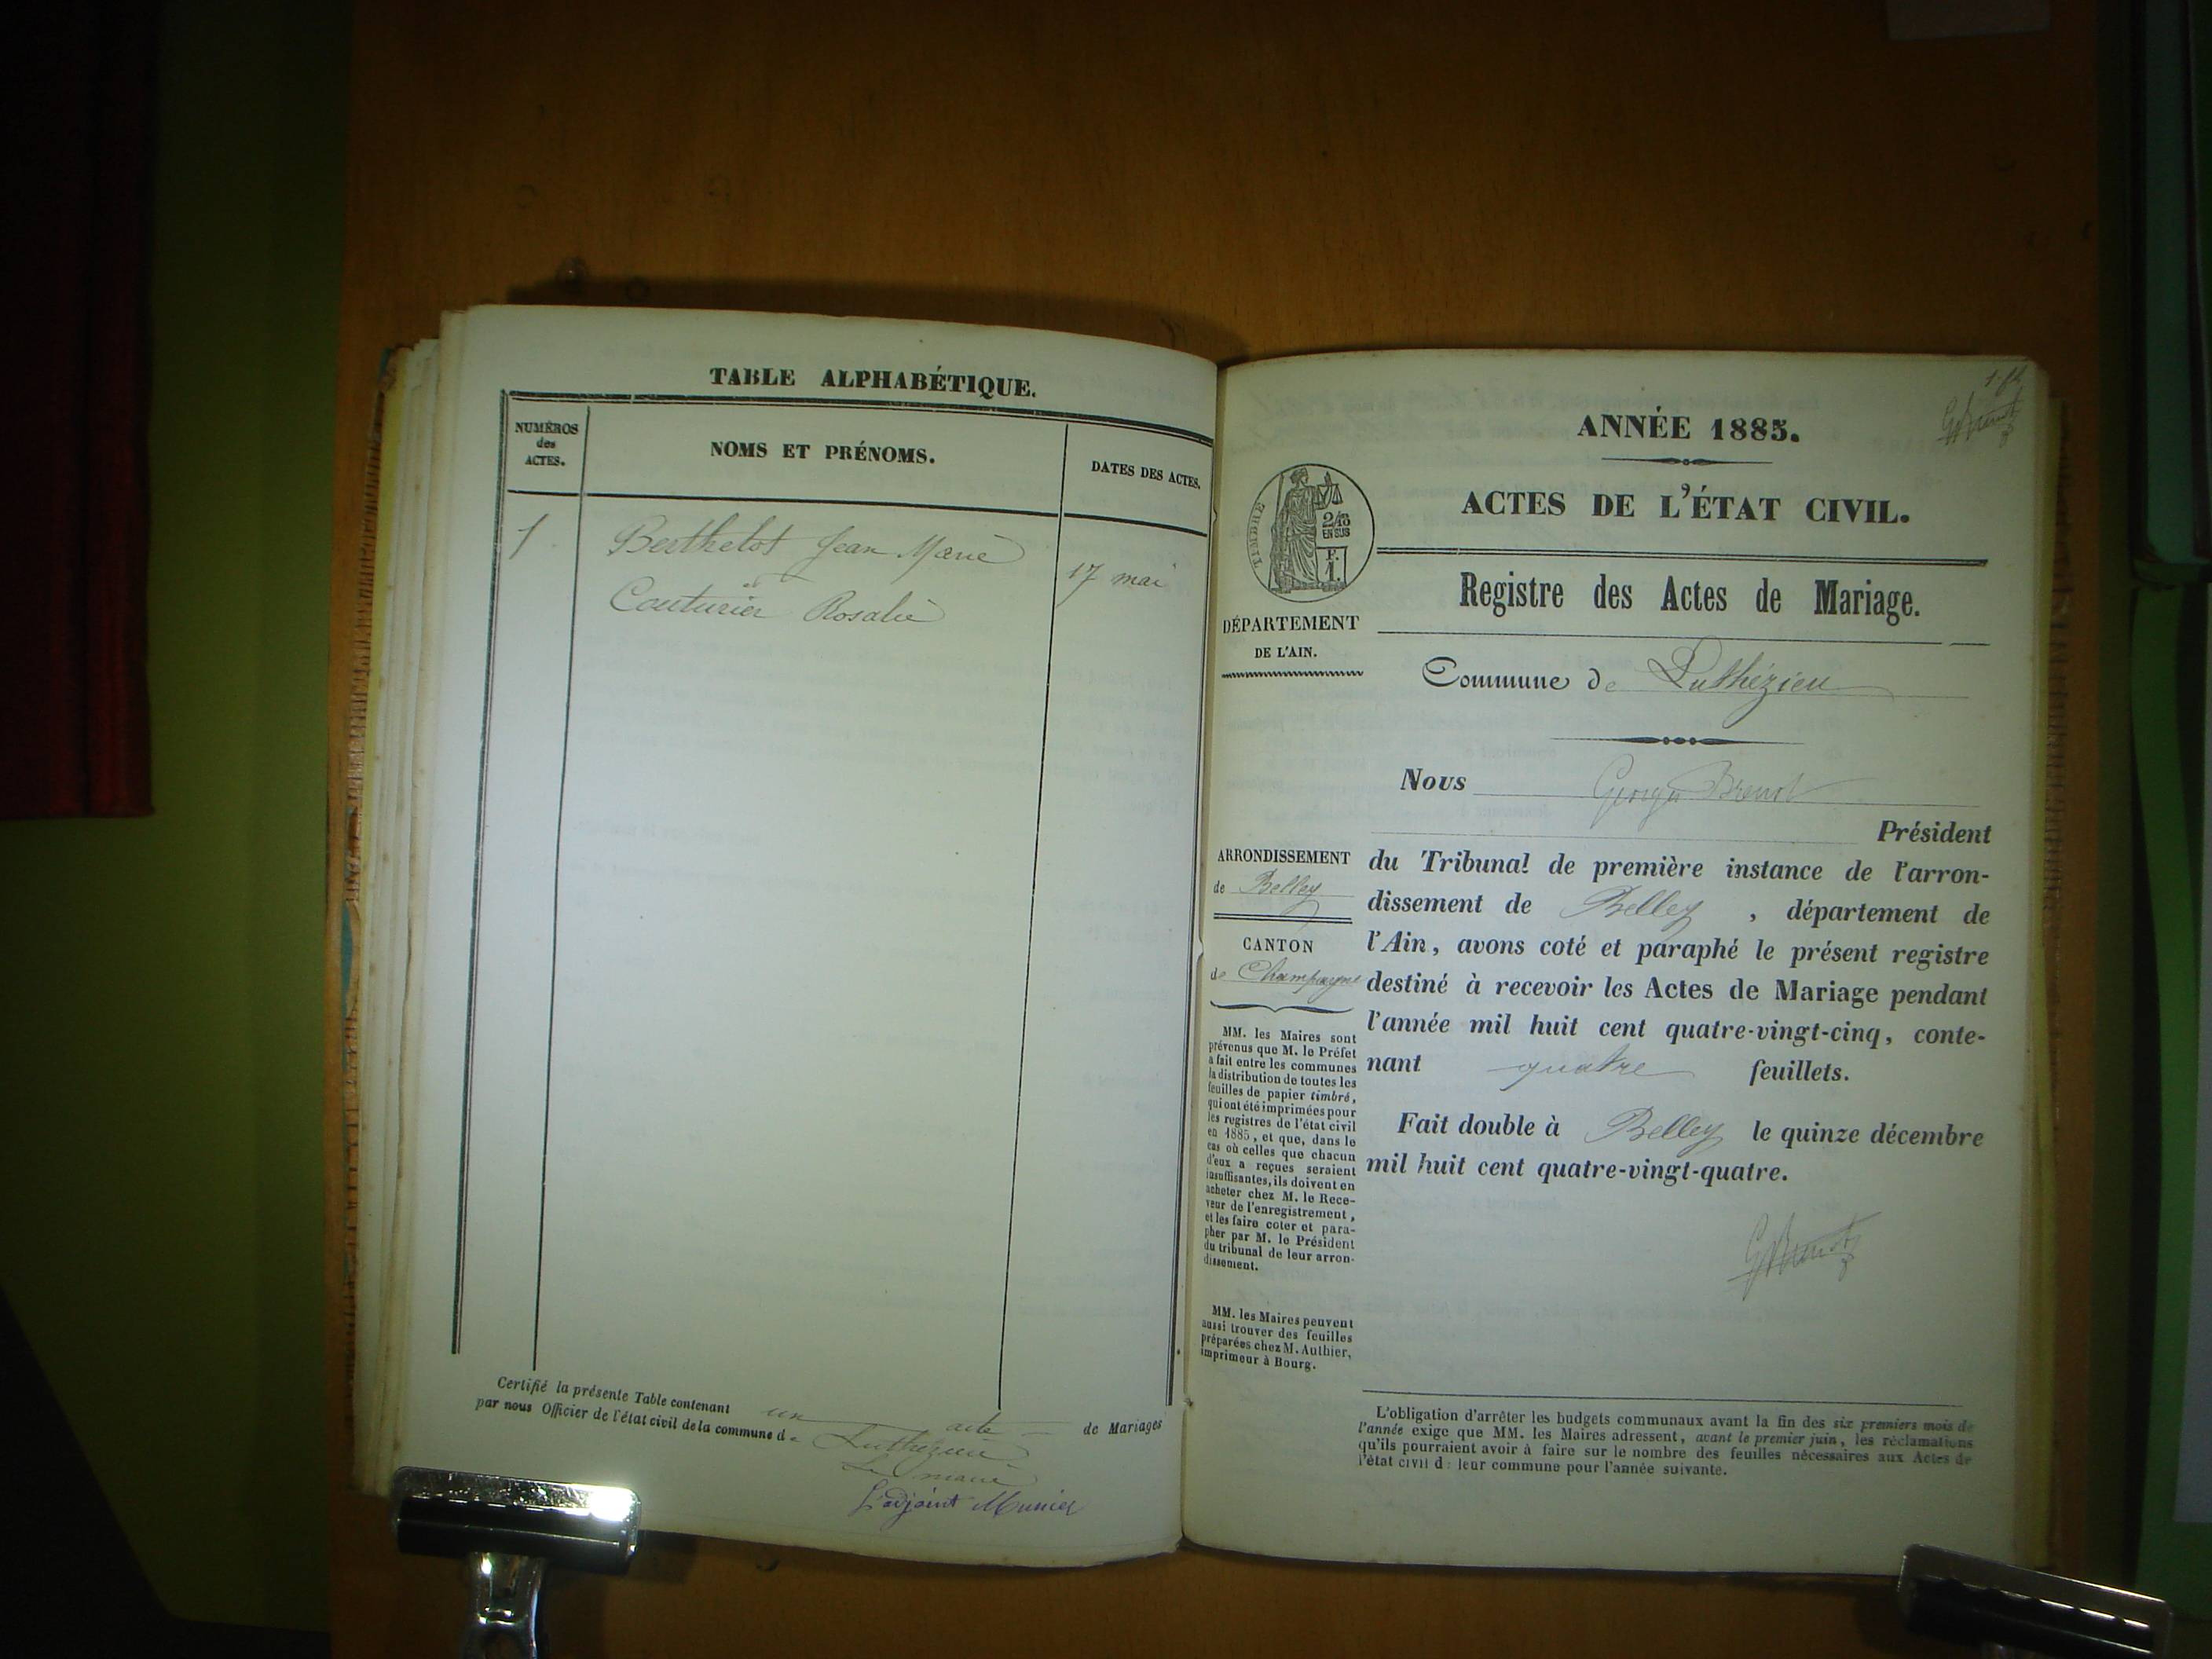 TABLE ALPHABÉTIQUE.
NUMÉROS
des
ACTES.
NOMS ET PRÉNOMS.
DATES DES ACTES.
1
Berthelot Jean Marie
17 mai
Couturier Rosalie
Certifié la présente Table contenant un acte de Mariages
par nous Officier de l'état civil de la commune de Luthézieu
Le maire
L'adjoint Munier
ANNÉE 1885.
ACTES DE L'ÉTAT CIVIL.
TIMBRE
2/10
EN SUS
F.
1.
Registre des Actes de Mariage.
DÉPARTEMENT
DE L'AIN.
Commune de Luthézieu
Nous Georges Brenot
Président
du Tribunal de première instance de l'arron-
dissement de Belley, département de
l'Ain, avons coté et paraphé le présent registre
destiné à recevoir les Actes de Mariage pendant
l'année mil huit cent quatre-vingt-cinq, conte-
nant quatre feuillets.
Fait double à Belley le quinze décembre
mil huit cent quatre-vingt-quatre.
ARRONDISSEMENT
de Belley
CANTON
de Champagne
MM. les Maires sont
prévenus que M. le Préfet
a fait entre les communes
la distribution de toutes les
feuilles de papier timbré,
qui ont été imprimées pour
les registres de l'état civil
en 1885, et que, dans le
cas où celles que chacun
d'eux a reçues seraient
insuffisantes, ils doivent en
acheter chez M. le Rece-
veur de l'enregistrement,
et les faire coter et para-
pher par M. le Président
du tribunal de leur arron-
dissement.
MM. les Maires peuvent
aussi trouver des feuilles
préparées chez M. Authier,
imprimeur à Bourg.
L'obligation d'arrêter les budgets communaux avant la fin des six premiers mois de
l'année exige que MM. les Maires adressent, avant le premier juin, les réclamations
qu'ils pourraient avoir à faire sur le nombre des feuilles nécessaires aux Actes de
l'état civil d: leur commune pour l'année suivante.